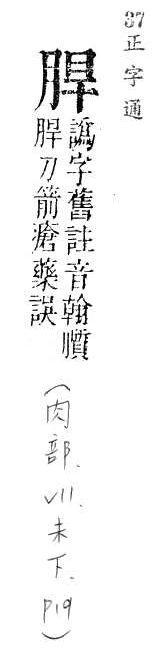 37 正字通
䏷
譌字舊註音翰膹
䏷刀箭瘡藥誤
(肉部. VII. 未下. P19)